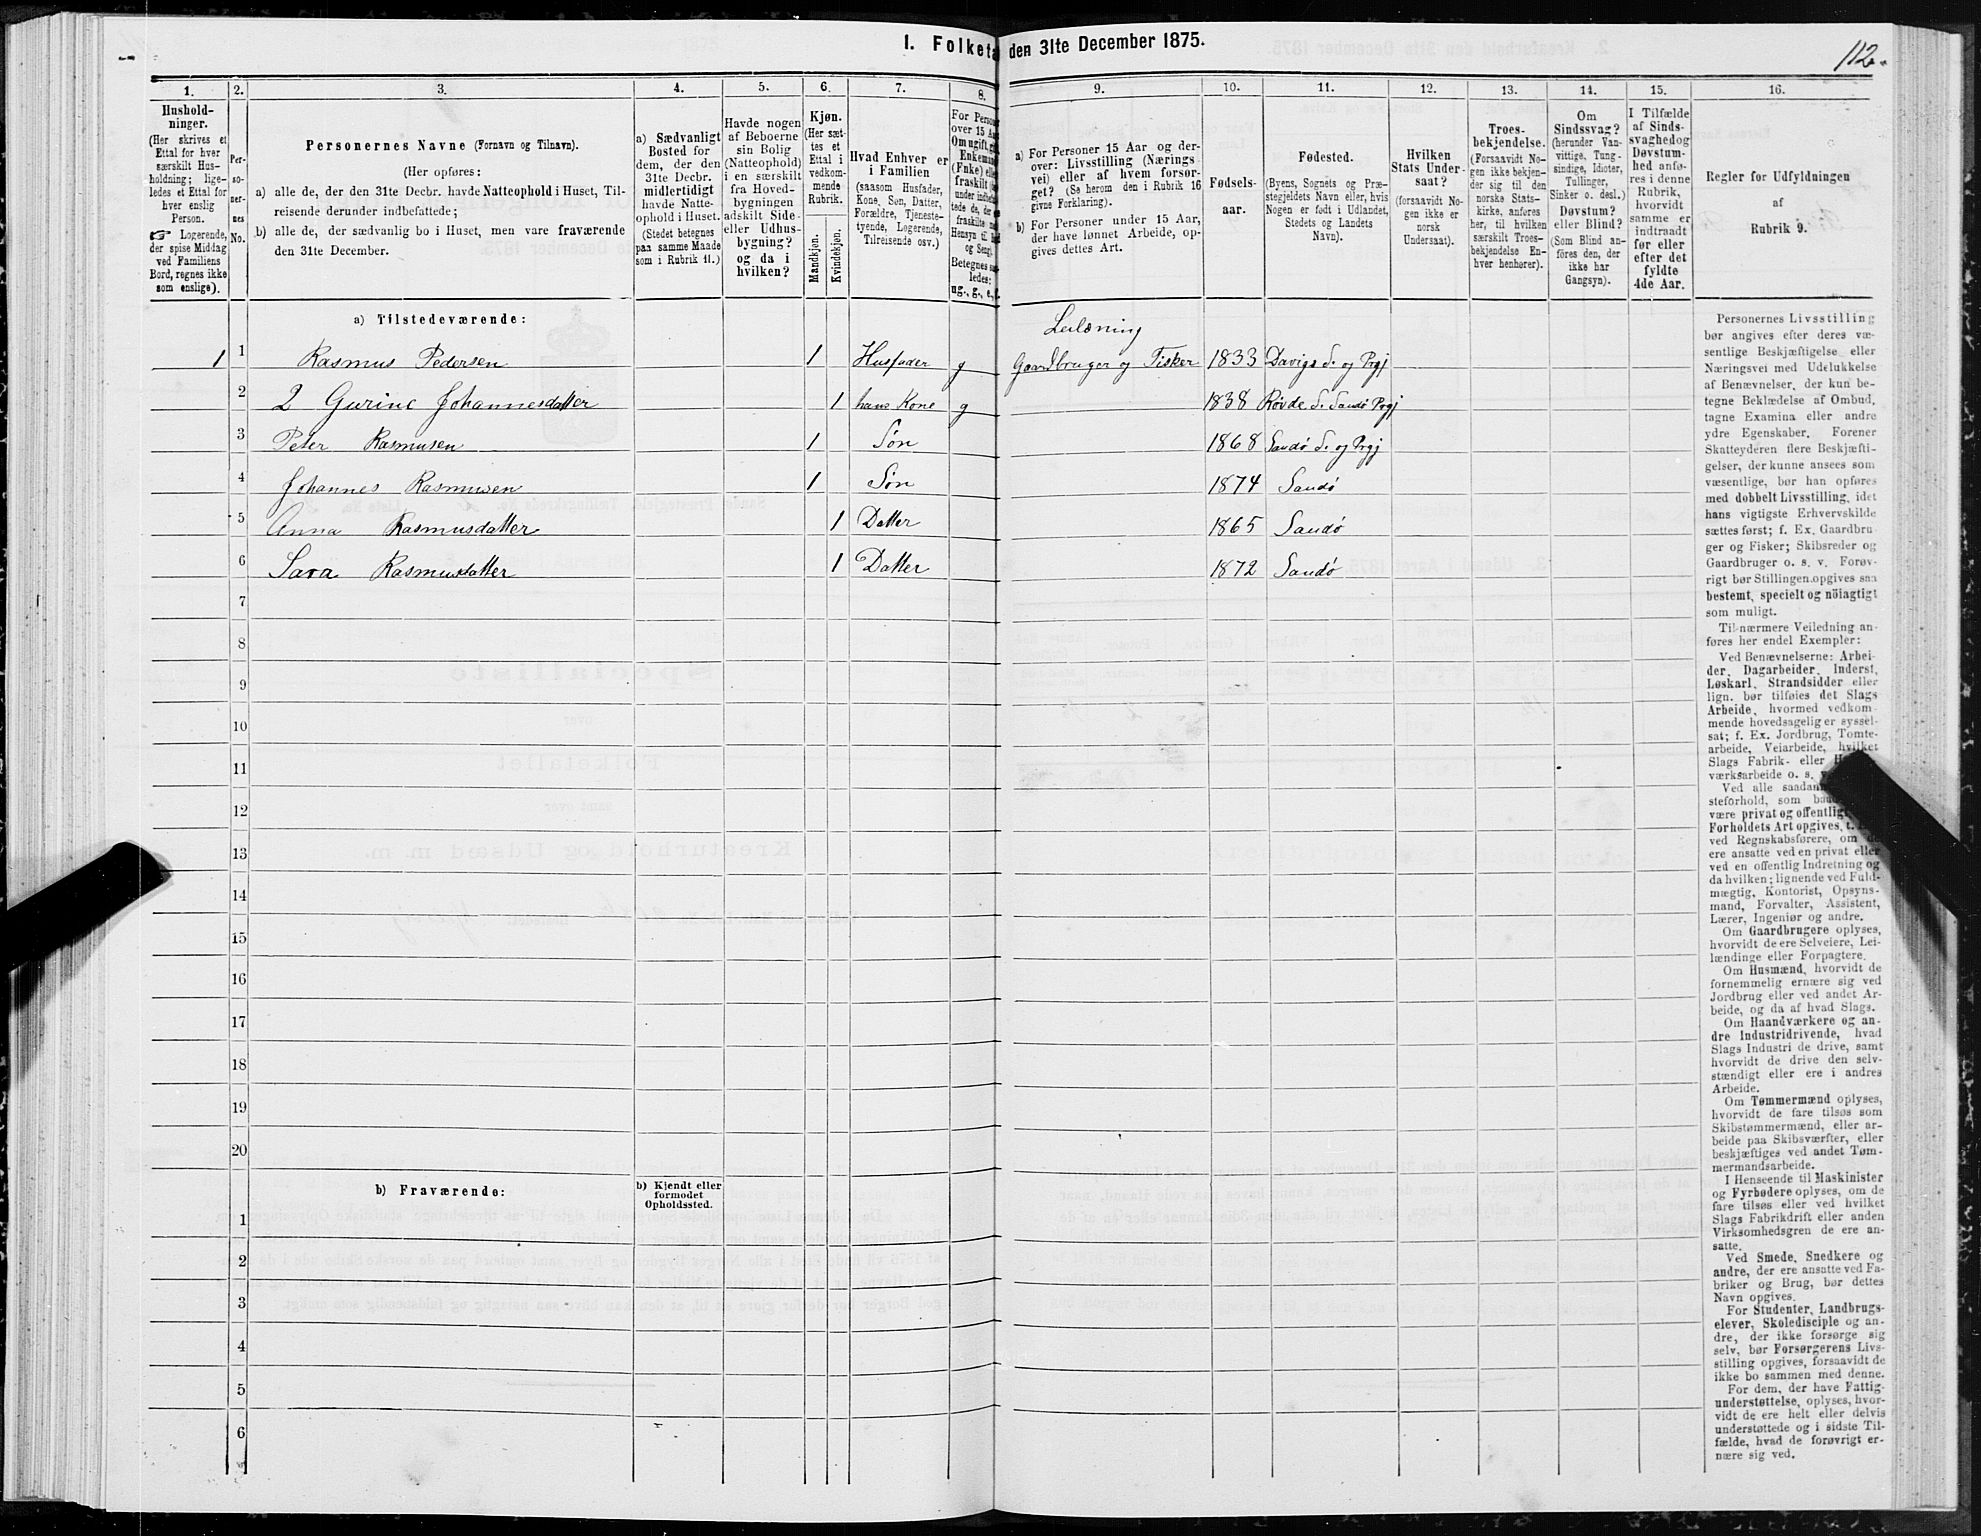 1. Folketa den 31te December 1875.
112.
1. 2. 3. 4. 5. 6. 7. 8. 9. 10. 11. 12. 13. 14. 15. 16.
Hushold-
ninger.
(Her skrives et
Ettal for hver
særskilt Hus-
holdning; lige-
ledes et Ettal for
hver enslig
Person.
☞ Logerende,
der spise Middag
ved Familiens
Bord, regnes ikke
som enslige).
Per-
so-
ner-
nes
No.
Personernes Navne (Fornavn og Tilnavn).
(Her opføres:
a) alle de, der den 31te Decbr. havde Natteophold i Huset, Til-
reisende derunder indbefattede;
b) alle de, der sædvanlig bo i Huset, men vare fraværende
den 31te December.
a) Sædvanligt
Bosted for
dem, der den
31te Decbr.
midlertidigt
havde Natte-
ophold i Huset.
(Stedet betegnes
paa samme Maade
som i Rubrik 11.)
Havde nogen
af Beboerne
sin Bolig
(Natteophold)
i en særskilt
fra Hoved-
bygningen
adskilt Side-
eller Udhus-
bygning?
og da i
hvilken?
Kjøn.
(Her sæt-
tes et
Ettal i
vedkom-
mende
Rubrik.
Mandkjøn.
Kvindekjøn.
Hvad Enhver er
i Familien
(saasom Husfader,
Kone, Søn, Datter,
Forældre, Tjeneste-
tyende, Logerende,
Tilreisende osv.)
For Person
over 15 Aa
Om ugift, gi
Enkeman
(Enke) elle
fraskilt
under indbefat
tede de, der
fraskilte
Hensyn til B
og Seng).
Betegnes saa-
ledes:
ug., g., e., f.
a) For Personer 15 Aar og der-
over: Livsstilling (Nærings-
vei) eller af hvem forsør-
get? (Se herom den i Rubrik 16
givne Forklaring).
b) For Personer under 15 Aar,
der have lønnet Arbeide, op-
gives dettes Art.
Fødsels-
aar.
Fødested.
(Byens, Sognets og Præ-
stegjeldets Navn eller, hvis
Nogen er født i Udlandet,
Stedets og Landets
Navn).
Hvilken
Stats Under-
saat?
(forsaavidt No-
gen ikke er
norsk
Undersaat).
Troes-
bekjendelse.
(Forsaavidt No-
gen ikke bekjen-
der sig til den
norske Stats-
kirke, anføres
her, til hvilken
særskilt Troes-
bekjendelse En-
hver henhører).
Om
Sindssvag?
(herunder Van-
vittige, Tung-
sindige, Idioter,
Tullinger,
Sinker o. desl.)
Døvstum?
eller Blind?
(Som Blind an-
føres den, der
ikke har
Gangsyn).
I Tilfælde
af Sinds-
svaghedog
Døvstum-
hed anfø-
res i denne
Rubrik,
hvorvidt
samme er
indtraadt
før eller
efter det
fyldte
4de Aar.
Regler for Udfyldningen
af
Rubrik 9.
a) Tilstedeværende:
Leilæning
1 1 Rasmus Pedersen 1 Husfader g Gaardbruger og Fisker 1833 Davigs S. og Prgj
2 2 Gurine Johannesdatter 1 hans Kone g 1838 Røvde S. Sandø Prgj
3 Peter Rasmusen 1 Søn 1868 Sandø S. og Prgj
4 Johannes Rasmusen 1 Søn 1874 Sandø
5 Anna Rasmusdatter 1 Datter 1865 Sandø
6 Sara Rasmusdatter 1 Datter 1872 Sandø
7
8
9
10
11
12
13
14
15
16
17
18
19
20
b) Fraværende:
b) Kjendt eller
formodet
Opholdssted.
1
2
3
4
5
6
Personernes Livsstilling
bør angives efter deres væ-
sentlige Beskjæftigelse eller
Næringsvei med Udelukkelse
af Benævnelser, der kun be-
tegne Beklædelse af Ombud,
tagne Examina eller andre
ydre Egenskaber. Forener
Skatteyderen flere Beskjæfti-
gelser, der kunne ansees som
væsentlige, bør han opføres
med dobbelt Livsstilling, idet
hans vigtigste Erhvervskilde
sættes først; f. Ex. Gaardbru-
ger og Fisker; Skibsreder og
Gaardbruger o. s. v. Forøv-
rigt bør Stillingen opgives saa
bestemt, specielt og nöiagtigt
som muligt.
Til nærmere Veiledning an-
føres her endel Exempler:
Ved Benævnelserne: Arbei-
der, Dagarbeider, Inderst,
Løskarl, Strandsidder eller
lign. bør tilføies det Slags
Arbeide, hvormed vedkom-
mende hovedsagelig er syssel-
sat; f. Ex. Jordbrug, Tomte-
arbeide, Veiarbeide, hvilket
Slags Fabrik- eller H
værksarbeide o. s. v.
Ved alle saadan
steforhold, som
være privat og offentlig
Forholdets Art opgives, t.
ved Regnskabsførere, om de
ere ansatte ved en privat eller
ved en offentlig Indretning og
da hvilken; lignende ved Fuld-
mægtig, Kontorist, Opsyns-
mand, Forvalter, Assistent,
Lærer, Ingeniør og andre.
Om Gaardbrugere oplyses,
hvorvidt de ere Selveiere, Lei-
lændinge eller Forpagtere.
Om Husmænd, hvorvidt de
fornemmelig ernære sig ved
Jordbrug eller ved andet Ar-
beide, og da af hvad Slags.
Om Haandværkere og an-
dre Industridrivende, hvad
Slags Industri de drive, samt
hvorvidt de drive den selv-
stændigt eller ere i andres
Arbeide.
Om Tømmermænd oplyses,
hvorvidt de fare tilsøs som
Skibstømmermænd, eller ar-
beide paa Skibsværfter, eller
beskjæftiges ved andet Tøm-
mermandsarbeide.
I Henseende til Maskinister
og Fyrbødere oplyses, om de
fare tilsøs eller ved hvilket
Slags Fabrikdrift eller anden
Virksomhedsgren de ere an-
satte.
Ved Smede, Snedkere og
andre, der ere ansatte ved Fa-
briker og Brug, bør dettes
Navn opgives.
For Studenter, Landbrugs-
elever, Skoledisciple og an-
dre, der ikke forsørge sig
selv, bør Forsørgerens Livs-
stilling opgives, forsaavidt de
ikke bo sammen med denne.
For dem, der have Fattig-
understøttelse, oplyses, hvor-
vidt de ere helt eller delvis
understøttede og i sidste Til-
fælde, hvad de forøvrigt er-
nære sig ved.